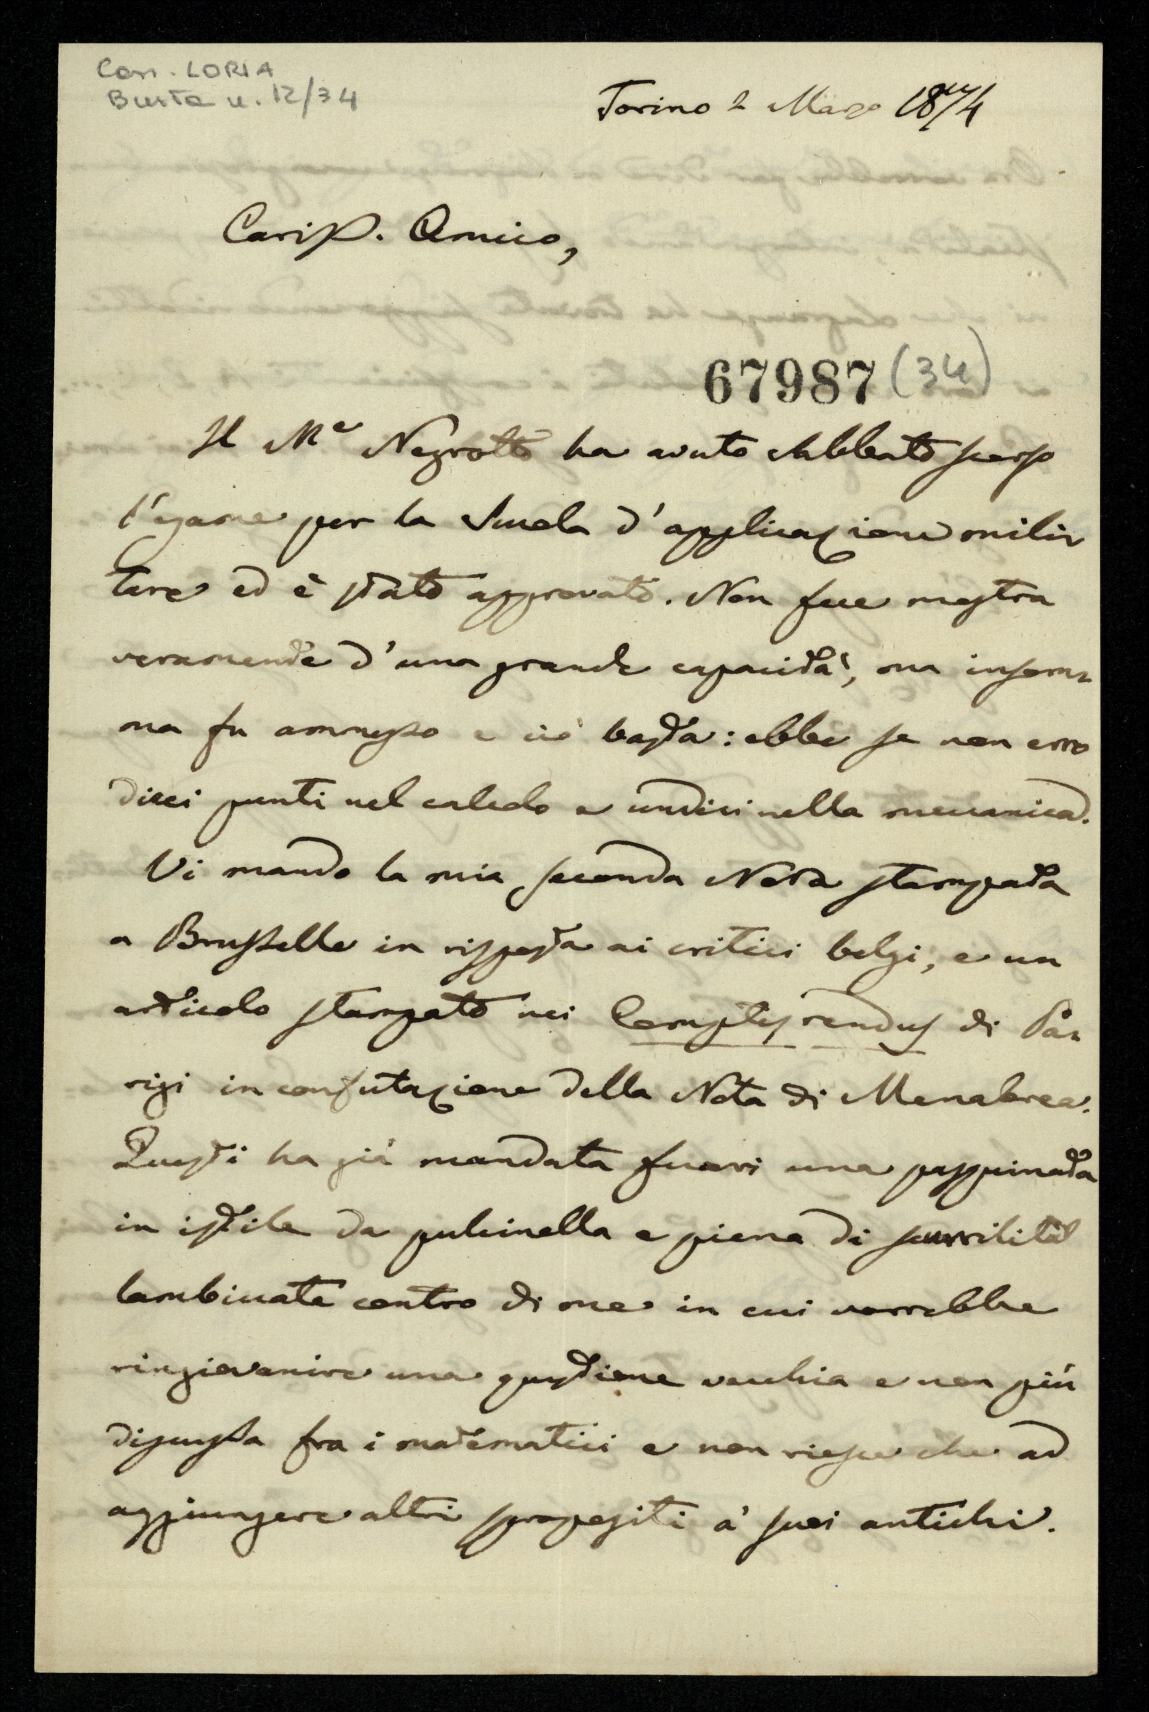 Corr. LORIA
Busta n. 12/34
Torino 2 Marzo 1874
Cariss. Amico,
67987 (34)
Il Me Negrotto ha avuto Sabbato scorso
l'esame per la Scuola d'applicazione mili-
tare ed è stato approvato. Non fece mostra
veramente d'una grande capacità, ma insom-
ma fu ammesso e ciò basta: ebbe se non erro
dieci punti nel calcolo e undici nella meccanica.
Vi mando la mia seconda Nota stampata
a Brusselle in risposta ai critici belgi, e un
articolo stampato nei Comptes rendus di Pa-
rigi in confutazione della Nota di Menabrea.
Questi ha già mandata fuori una pasquinata
in istile da pulcinella e piena di scurrilità
lambiccate contro di me in cui vorrebbe
ringiovanire una questione vecchia e non più
discussa fra i matematici e non riesce che ad
aggiungere altri spropositi a' suoi antichi.